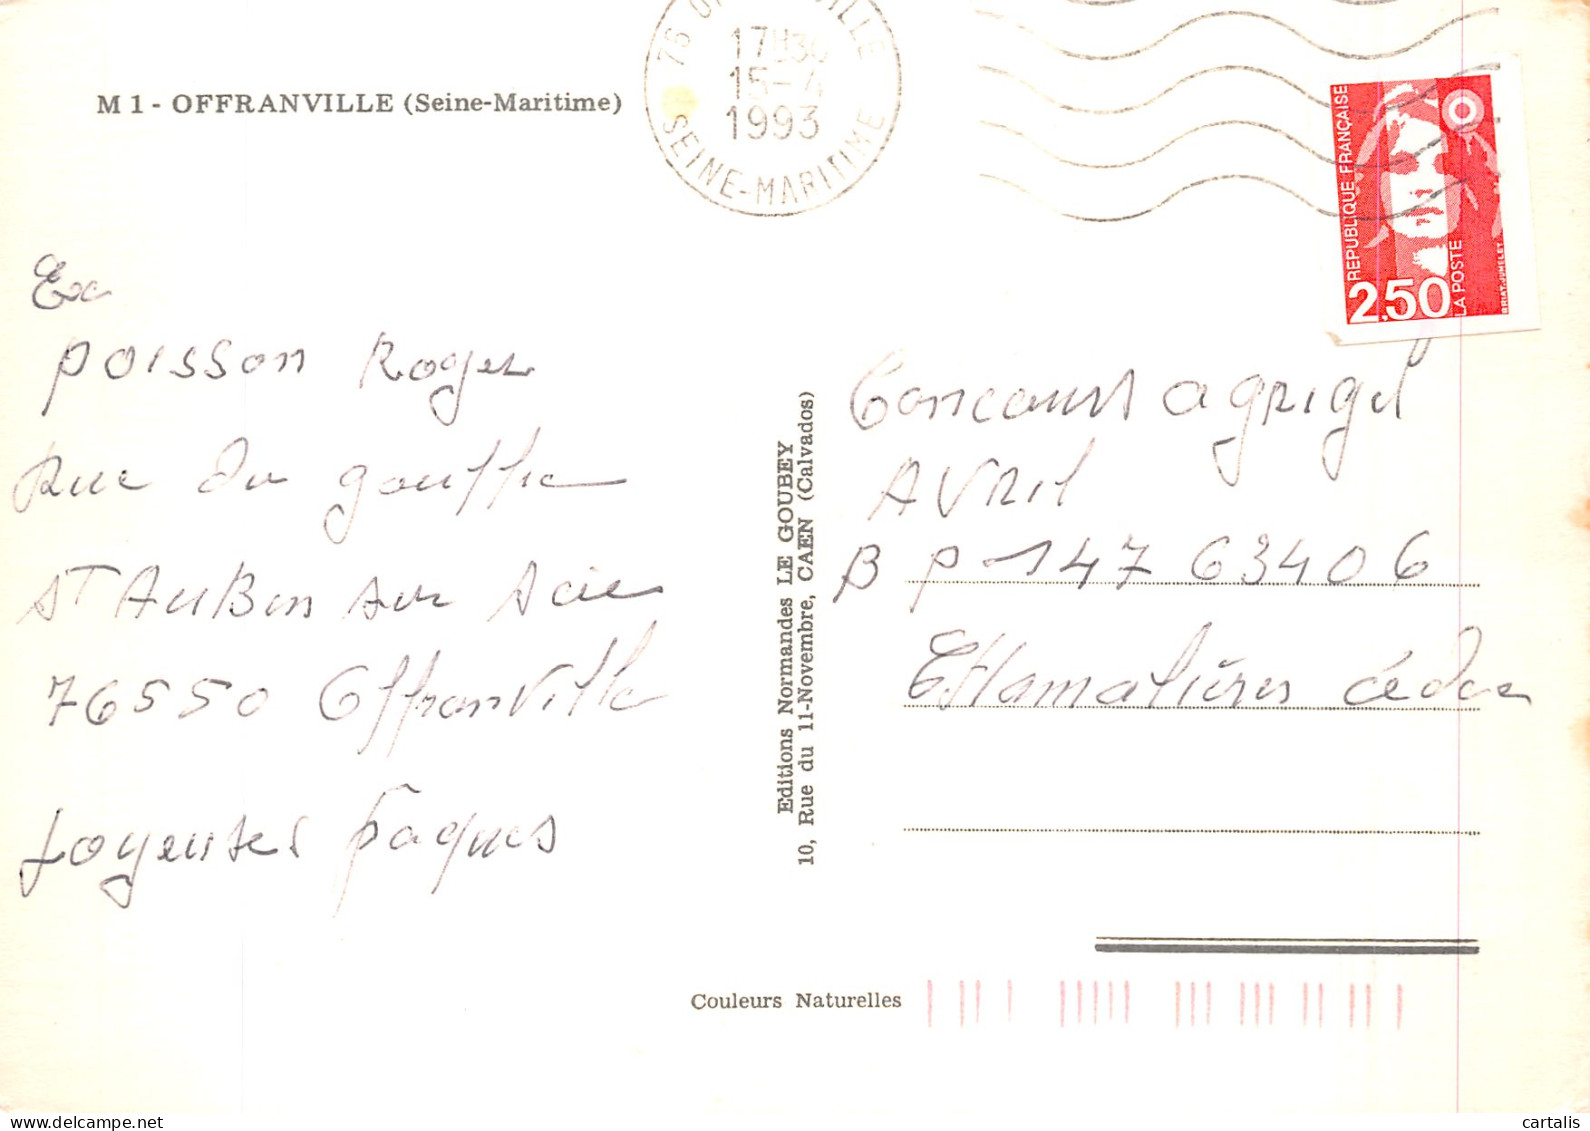 M 1 - OFFRANVILLE (Seine-Maritime)
76 OFFRANVILLE
17H30
15-4
1993
SEINE-MARITIME
REPUBLIQUE FRANÇAISE
2,50
LA POSTE
BRIAT-JUMELET
Ex
Poisson Roger
Rue du gouffre
ST AuBin sur Scie
76550 Offranville
Joyeuses Paques
Editions Normandes LE GOUBEY
10, Rue du 11-Novembre, CAEN (Calvados)
Concours agrigel
AVRil
B P 147 63406
CHamalières cédex
Couleurs Naturelles
cartalis